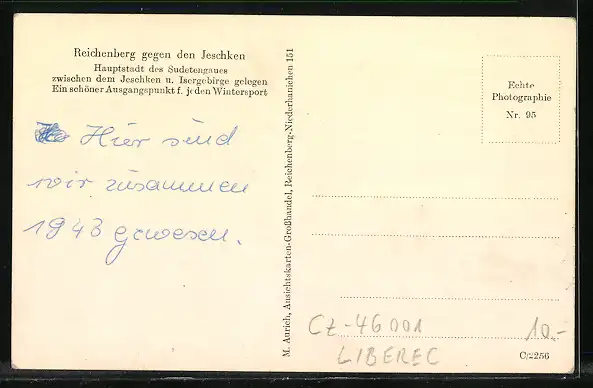 Reichenberg gegen den Jeschken
Hauptstadt des Sudetengaues
zwischen dem Jeschken u. Isergebirge gelegen
Ein schöner Ausgangspunkt f. jeden Wintersport
Hier sind
wir zusammen
1943 gewesen.
M. Aurich, Ansichtskarten-Großhandel, Reichenberg-Niederhanichen 151
Echte
Photographie
Nr. 95
CZ-46001
10.-
LIBEREC
C/2256